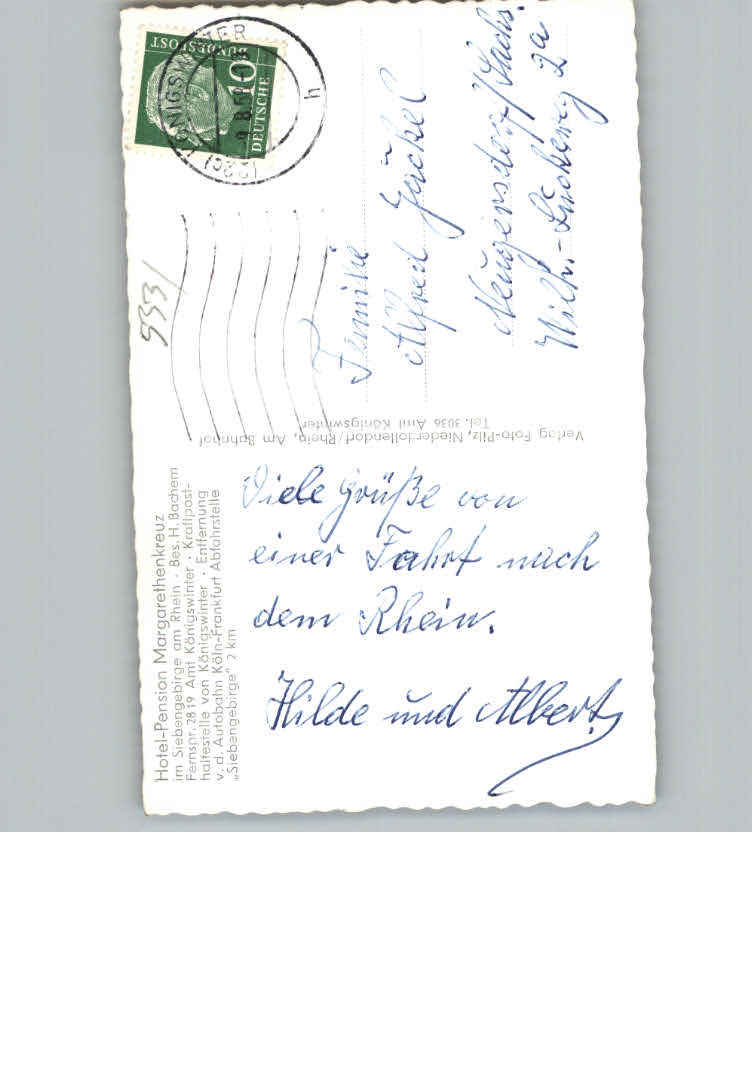 Hotel-Pension Margarethenkreuz
im Siebengebirge am Rhein · Bes. H. Bachem
Fernspr. 2819 Amt Königswinter · Kraftpost-
haltestelle von Königswinter · Entfernung
v. d. Autobahn Köln-Frankfurt Abfahrtstelle
„Siebengebirge" 2 km
Viele Grüße von
einer Fahrt nach
dem Rhein.
Hilde und Albert
Verlag Foto-Pilz, Niederdollendorf/Rhein, Am Bahnhof
Tel. 3036 Amt Königswinter
DEUTSCHE
BUNDESPOST
10
(22c) KÖNIGSWINTER
h
Familie
Alfred Jäckel
Neugersdorf/Sachs.
2a